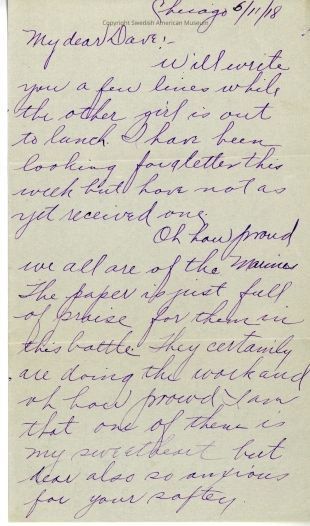 Chicago 6/11/18
Copyright Swedish American Museum
My dear Dave:-
Will write
you a few lines while
the other girl is out
to lunch. I have been
looking for a letter this
week but have not as
yet received one.
Oh how proud
we all are of the Marines
The paper is just full
of praise for them in
this battle They certainly
are doing the work and
oh how proud I am
that one of them is
my sweetheart but
dear also so anxious
for your saftey.